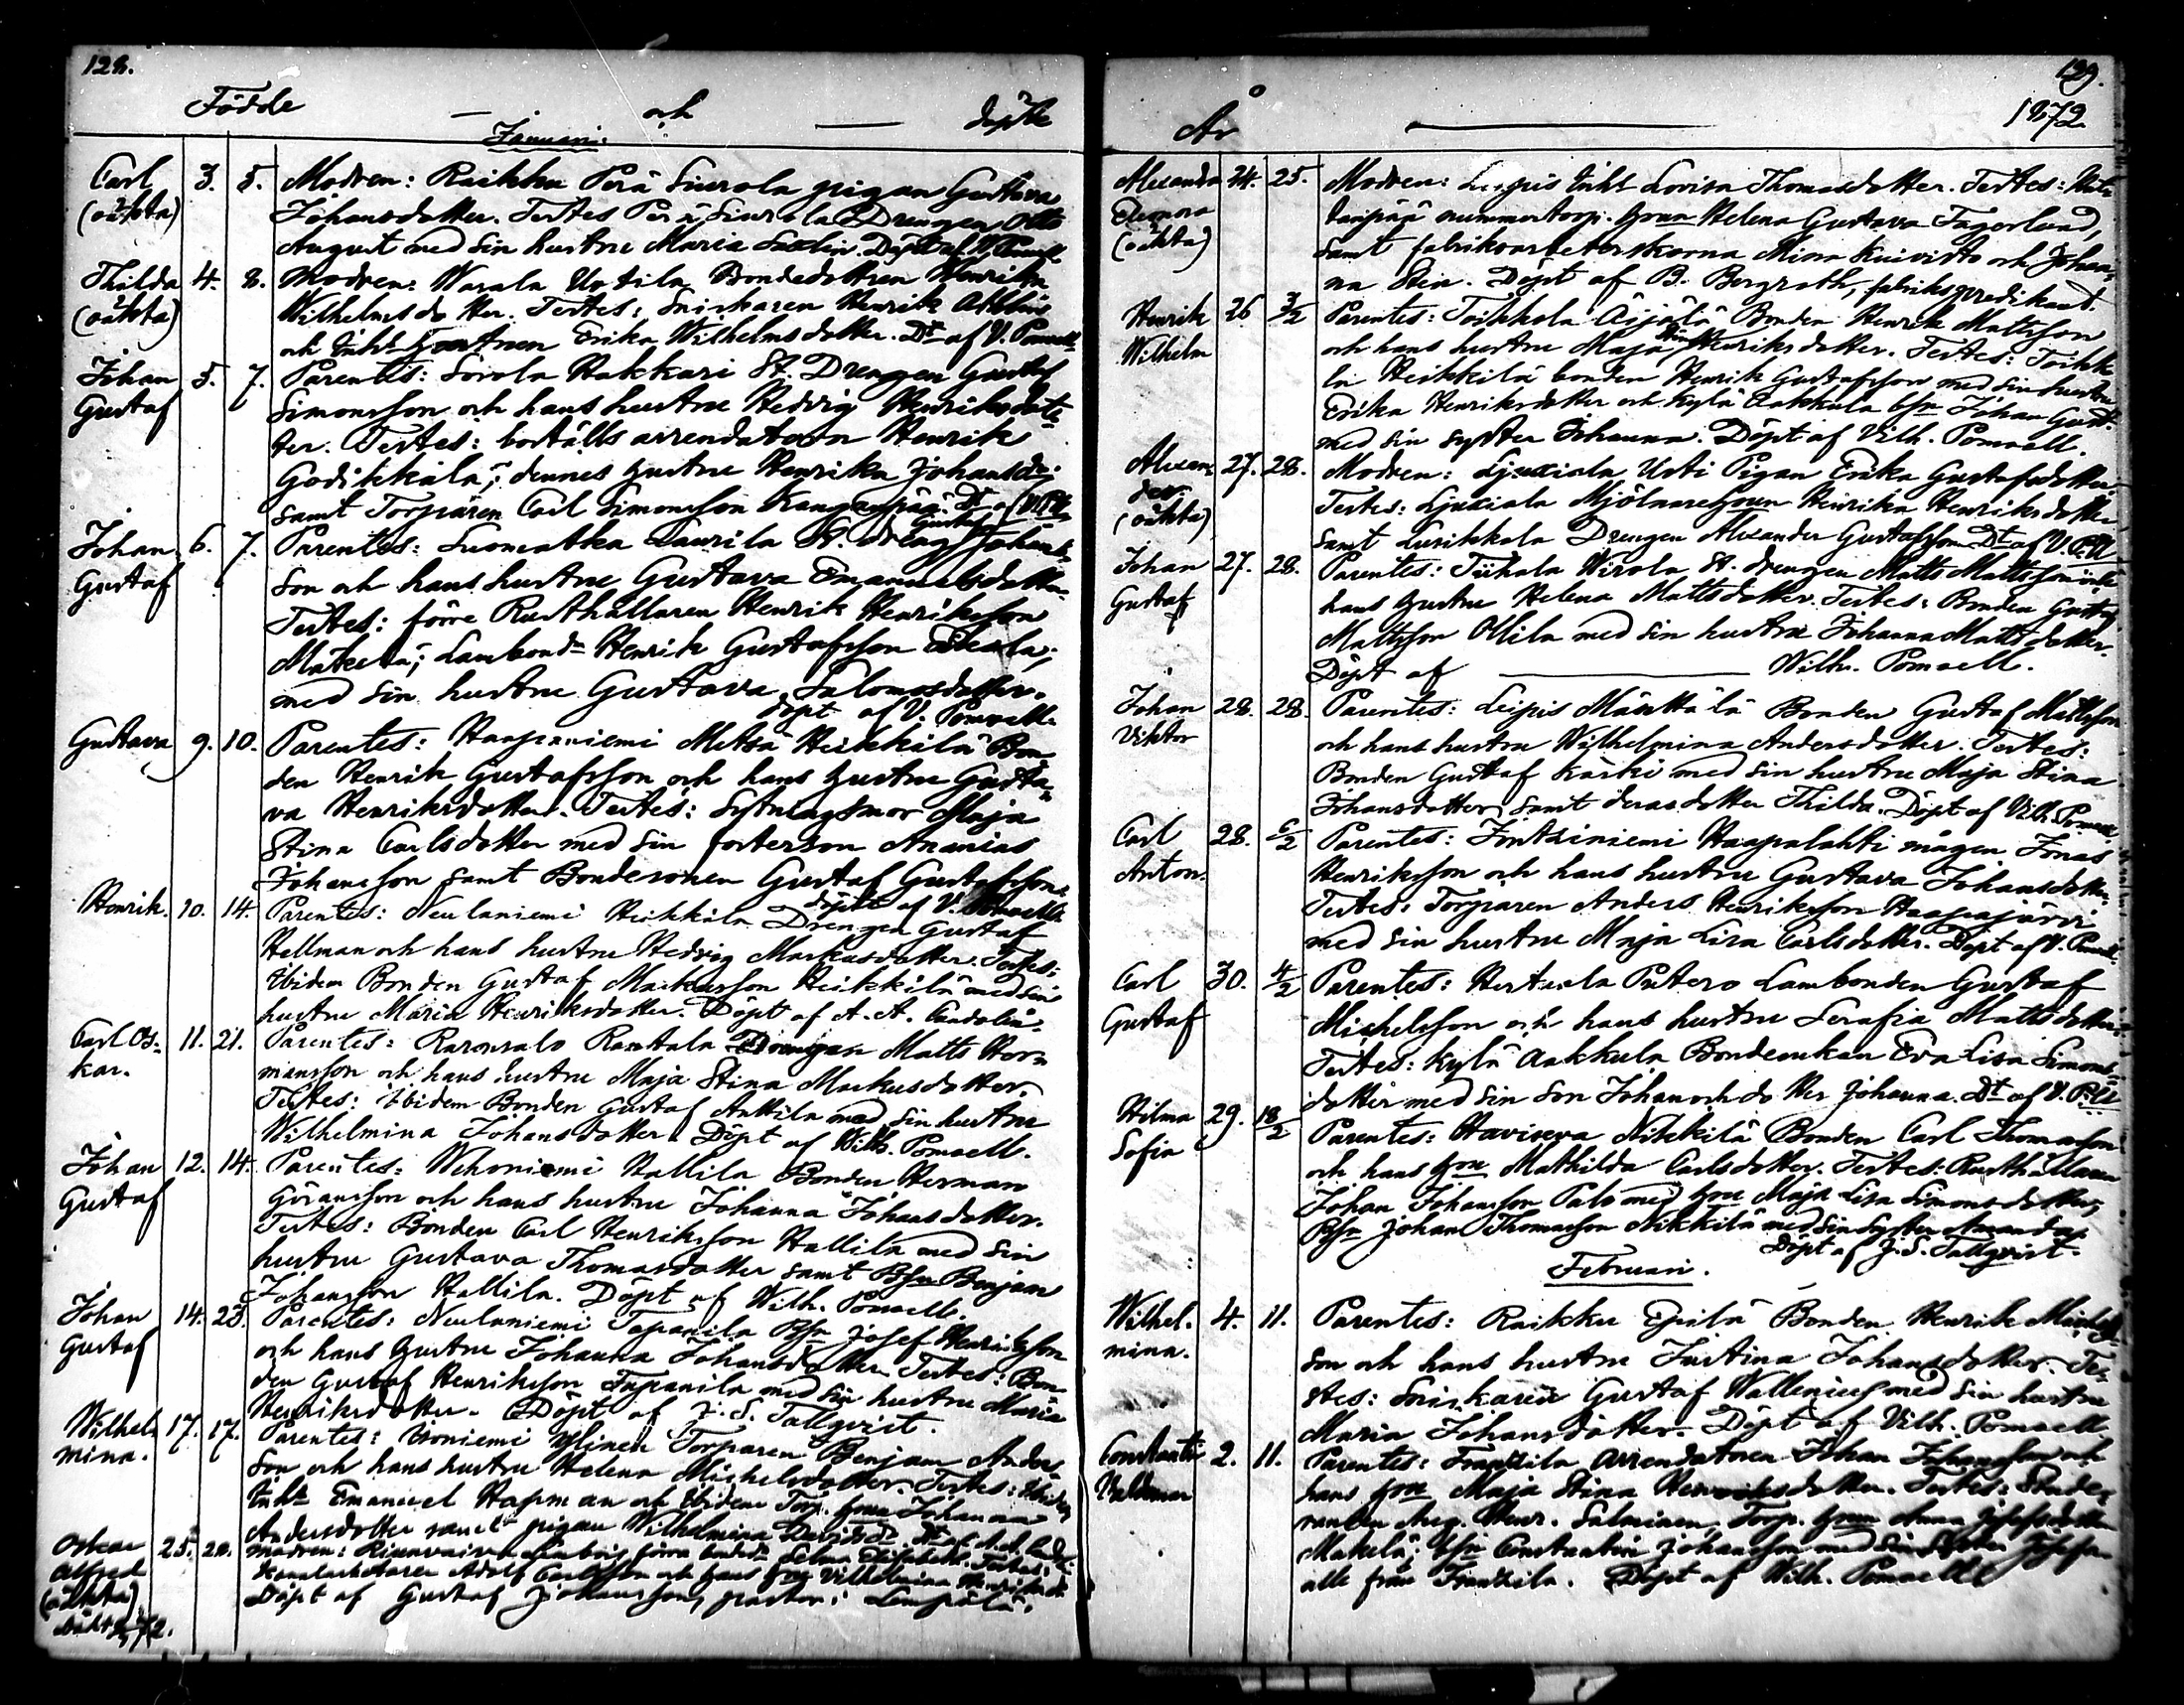 128.
Födde — och — döpte
Januari.
Carl 3. 5. Modren: Raikku Perä Siurola pigan Gustava
(oäkta) Johansdotter. Testes Perä Siurola Drengen Otto
August med sin hustru Maria Döpt af V.
Thilda 4. 8. Modren: Uotila Bondedottren Henrika
(oäkta) Wilhelmsdotter. Testes: Snickaren Henrik
och Inhs hustrun Erika Wilhelmsdotter. Dt af V. Pomoell
Johan 5. 7. Parentes: Sorola Hakkari St. Drengen Gustaf
Gustaf Simonsson och hans hustru Hedvig Henriksdot-
ter. Testes: boställs arrendatorn Henrik
dennes hustru Henrika Johansd.
samt Torparen Carl Simonsson Kangaspää. Dt af
Johan 6. 7. Parentes: Suomatka Laurila St. dreng Gustaf Johans-
Gustaf son och hans hustru Gustava Emanuelsdotter
Testes: förre Rusthållaren Henrik Henriksson
Mäkelä; Lambond. Henrik Gustafsson
med sin hustru Gustava Salomosdotter.
döpt af V. Pomoell.
Gustava 9. 10. Parentes: Haapaniemi Metsä Heikkilä Bon-
den Henrik Gustafsson och hans hustru Gusta-
va Henriksdotter. Testes: Sytningsmor Maja
Stina Carlsdotter med sin fosterson Ananias
Johansson samt Bondesonen Gustaf Gustafsson.
döpt af V. Pomoell
Henrik. 10. 14. Parentes: Neulaniemi Heikkilä Drengen Gustaf
Hellman och hans hustru Hedvig Markusdotter. Testes:
Ibidem Bonden Gustaf Markusson Heikkilä med sin
hustru Maria Henriksdotter. Döpt af A. A.
Carl Os- 11. 21. Parentes: Rantala Drengen Matts Her-
kar. mansson och hans hustru Maja Stina Markusdotter.
Testes: Ibidem Bonden Gustaf Anttila med sin hustru
Wilhelmina Johansdotter. Döpt af Wilh. Pomoell.
Johan 12. 14. Parentes: Wehoniemi Hallila Bonden Herman
Gustaf Göransson och hans hustru Johanna Johansdotter.
Testes: Bonden Carl Henriksson Hallila med sin
hustru Gustava Thomasdotter samt Bsn Benjam
Johansson Hallila. Döpt af Wilh. Pomoell.
Johan 14. 23. Parentes: Neulaniemi Tapanila Bsn Josef Henriksson
Gustaf och hans hustru Johanna Johansdotter. Testes: Bon-
den Gustaf Henriksson Tapanila med sin hustru Maria
Henriksdotter. Döpt af J. S. Tallqvist.
Wilhel- 17. 17. Parentes: Ylinen Torparen Benjam Anders-
mina. son och hans hustru Helena Michelsdotter. Testes: Ibidem
Inhs Emanuel Hagman och Ibidem Torp. hrun Johanna
Andersdotter samt pigan Wilhelmina Davidsdr Dt af A. A.
Oskar 25. Modren: förra Selma Elisabeth. Testes:
Alfred Adolf Carlsson och hans hru Vilhelmina Henriksdr
(oäkta) Döpt af Gustaf Johansson, pastor i Lempälä.

129.
År — 1872
Alexandra 24. 25. Modren: Leipis Inhs Lovisa Thomasdotter. Testes:
Eleonora nummertorp. hrun Helena Gustava Fagerlund,
(oäkta) samt fabriksarbeterskorna Mina Kuivisto och Johan-
na Sten. Döpt af B. Bergroth, fabrikspredikant.
Henrik 26 3/2 Parentes: Toikkola Äijälä Bonden Henrik Mattsson
Wilhelm och hans hustru Maja Stina Henriksdotter. Testes: Toikko-
la Heikkilä bonden Henrik Gustafsson med sin hustru
Erika Henriksdotter och Kylä Aakkula bsn Johan Gust.
med sin syster Johanna. Döpt af Vilh. Pomoell.
Alexan- 27. 28. Modren: Ljuxiala Uoti Pigan Erika Gustafsdotter.
der Testes: Ljuxiala Mjölnarehrun Henrika Henriksdotter
(oäkta) samt Liuikkala Drengen Alexander Gustafsson. Dt af V. P-ll
Johan 27. 28. Parentes: Tiihala Wirola St. drengen Matts Mattsson och
Gustaf hans hustru Helena Mattsdotter. Testes: Bonden Gustaf
Mattsson Ollila med sin hustru Johanna Mattsdotter.
Döpt af — Wilh. Pomoell.
Johan 28. 28. Parentes: Leipis Mänttälä Bonden Gustaf Mattsson
Viktor och hans hustru Wilhelmina Andersdotter. Testes:
Bonden Gustaf Kärki med sin hustru Maja Stina
Johansdotter, samt deras dotter Thilda. Döpt af Vilh. Pomoell
Carl 28. 6/2 Parentes: Haapalahti mågen Jonas
Anton. Henriksson och hans hustru Gustava Johansdotter.
Testes: Torparen Anders Henriksson Haapajärvi
med sin hustru Maja Lisa Carlsdotter. Döpt af V. Pomoell.
Carl 30. 4/2 Parentes: Hertuala Putero Lambonden Gustaf
Gustaf Michelsson och hans hustru Serafia Mattsdotter.
Testes: Kylä Aakkula Bondeenkan Eva Lisa Simons-
dotter med sin son Johan och dotter Johanna. Dt af V. P-ll
Hilma 29. 18/2 Parentes: Haviseva Nikkilä Bonden Carl Thomasson
Sofia och hans hru Mathilda Carlsdotter. Testes: Rusthållaren
Johan Johansson Palo med hru Maja Lisa Simonsdotter,
Bsn Johan Thomasson Nikkilä med sin syster Amanda.
Döpt af J. S. Tallqvist.
Februari.
Wilhel- 4. 11. Parentes: Raikku Eprilä Bonden Henrik Michels-
mina. son och hans hustru Justina Johansdotter. Te-
stes: Snickaren Gustaf Wallenius med sin hustru
Maria Johansdotter. Döpt af Vilh. Pomoell
Constantin 2. 11. Parentes: Frantsila Arrendatoren Johan Johansson och
Valdemar hans hru Maja Stina Henriksdotter. Testes: Stude-
randen Aug. Henr. Salminen, Torp. hrun Anna Josefsdotter
Mäkelä; bsn Constantin Johansson med sin syster
alle från Frantsila. Döpt af Wilh. Pomoell